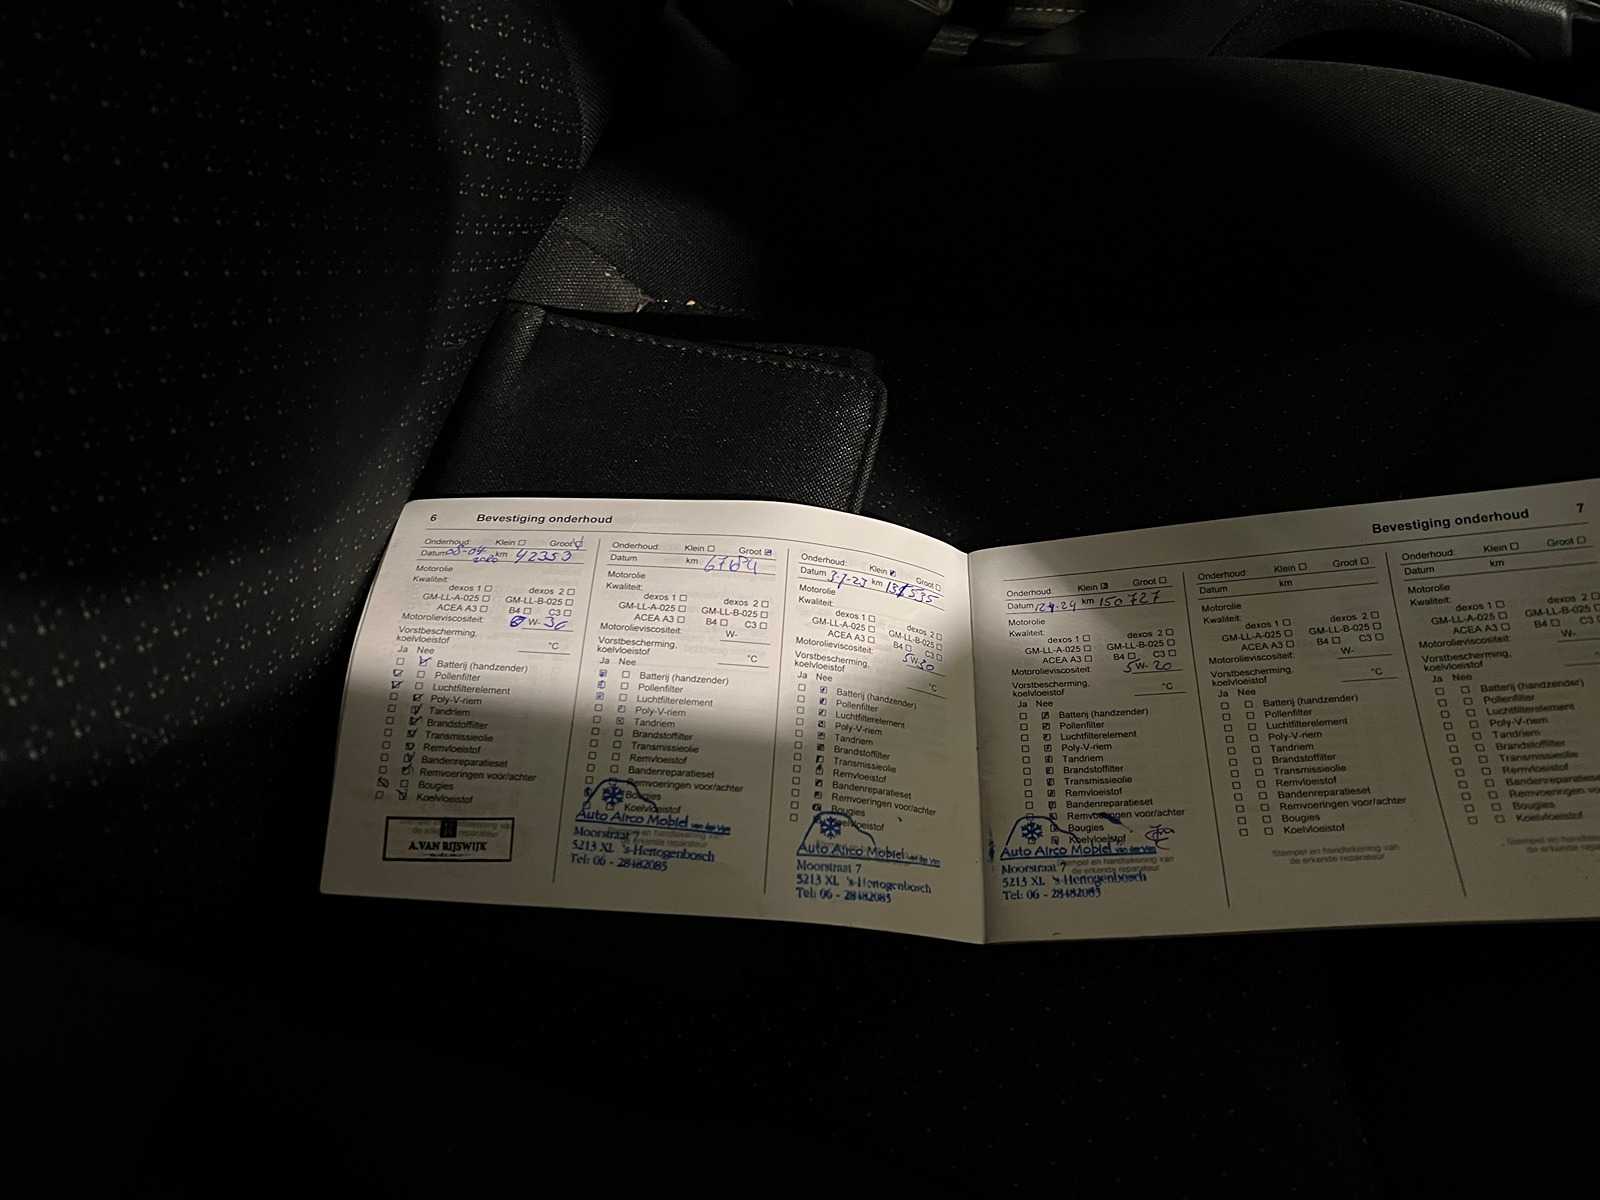 6 Bevestiging onderhoud
Onderhoud: Klein Groot
Datum 08-04 2020 km 42353
Motorolie
Kwaliteit:
dexos 1 dexos 2
GM-LL-A-025 GM-LL-B-025
ACEA A3 B4 C3
Motorolieviscositeit: W-30
Vorstbescherming, koelvloeistof °C
Ja Nee
Batterij (handzender)
Pollenfilter
Luchtfilterelement
Poly-V-riem
Tandriem
Brandstoffilter
Transmissieolie
Remvloeistof
Bandenreparatieset
Remvoeringen voor/achter
Bougies
Koelvloeistof
A.VAN RIJSWIJK
Onderhoud: Klein Groot
Datum km
Motorolie
Kwaliteit:
dexos 1 dexos 2
GM-LL-A-025 GM-LL-B-025
ACEA A3 B4 C3
Motorolieviscositeit: W-
Vorstbescherming, koelvloeistof °C
Ja Nee
Batterij (handzender)
Pollenfilter
Luchtfilterelement
Poly-V-riem
Tandriem
Brandstoffilter
Transmissieolie
Remvloeistof
Bandenreparatieset
Remvoeringen voor/achter
Bougies
Koelvloeistof
Auto Airco Mobiel van der Ven
Moorstraat 7
5213 XL 's-Hertogenbosch
Tel: 06 - 28482085
Onderhoud: Klein Groot
Datum 3-7-23 km
Motorolie
Kwaliteit:
dexos 1 dexos 2
GM-LL-A-025 GM-LL-B-025
ACEA A3 B4 C3
Motorolieviscositeit: 5W-20
Vorstbescherming, koelvloeistof °C
Ja Nee
Batterij (handzender)
Pollenfilter
Luchtfilterelement
Poly-V-riem
Tandriem
Brandstoffilter
Transmissieolie
Remvloeistof
Bandenreparatieset
Remvoeringen voor/achter
Bougies
Koelvloeistof
Auto Airco Mobiel van der Ven
Moorstraat 7
5213 XL 's-Hertogenbosch
Tel: 06 - 28482085
Bevestiging onderhoud 7
Onderhoud: Klein Groot
Datum km 150727
Motorolie
Kwaliteit:
dexos 1 dexos 2
GM-LL-A-025 GM-LL-B-025
ACEA A3 B4 C3
Motorolieviscositeit: 5W-20
Vorstbescherming, koelvloeistof °C
Ja Nee
Batterij (handzender)
Pollenfilter
Luchtfilterelement
Poly-V-riem
Tandriem
Brandstoffilter
Transmissieolie
Remvloeistof
Bandenreparatieset
Remvoeringen voor/achter
Bougies
Koelvloeistof
Stempel en handtekening van
de erkende reparateur
Auto Airco Mobiel van der Ven
Moorstraat 7
5213 XL 's-Hertogenbosch
Tel: 06 - 28482085
Onderhoud: Klein Groot
Datum km
Motorolie
Kwaliteit:
dexos 1 dexos 2
GM-LL-A-025 GM-LL-B-025
ACEA A3 B4 C3
Motorolieviscositeit: W-
Vorstbescherming, koelvloeistof °C
Ja Nee
Batterij (handzender)
Pollenfilter
Luchtfilterelement
Poly-V-riem
Tandriem
Brandstoffilter
Transmissieolie
Remvloeistof
Bandenreparatieset
Remvoeringen voor/achter
Bougies
Koelvloeistof
Stempel en handtekening van
de erkende reparateur
Onderhoud: Klein Groot
Datum km
Motorolie
Kwaliteit:
dexos 1 dexos 2
GM-LL-A-025 GM-LL-B-025
ACEA A3 B4 C3
Motorolieviscositeit: W-
Vorstbescherming, koelvloeistof
Ja Nee
Batterij (handzender)
Pollenfilter
Luchtfilterelement
Poly-V-riem
Tandriem
Brandstoffilter
Transmissieolie
Remvloeistof
Bandenreparatieset
Remvoeringen
Bougies
Koelvloeistof
Stempel en handtekening
de erkende